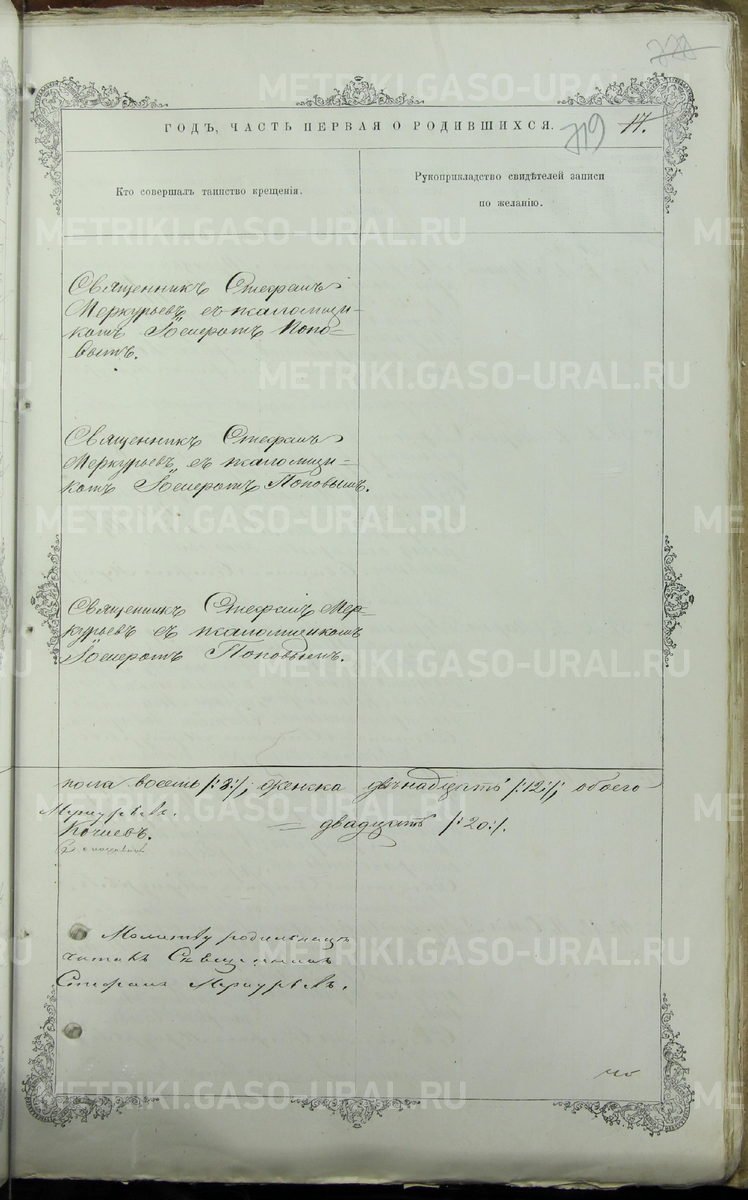 728
719
17.
ГОДЪ, ЧАСТЬ ПЕРВАЯ О РОДИВШИХСЯ.
Кто совершалъ таинство крещенія.
Рукоприкладство свидѣтелей записи
по желанію.
Священникъ Стефанъ
Меркурьевъ съ псаломщи-
комъ Попо-
вымъ.
Священникъ Стефанъ
Меркурьевъ съ псаломщи-
комъ Поповымъ.
Священникъ Стефанъ Мер-
курьевъ съ псаломщикомъ
Поповымъ.
пола восемь /:8:/, женска двѣнадцать /:12:/, обоего
Меркурьевъ.
= двадцать /:20:/.
Молитву родильницѣ
читалъ Священникъ
Стефанъ Меркурьевъ.
METRIKI.GASO-URAL.RU